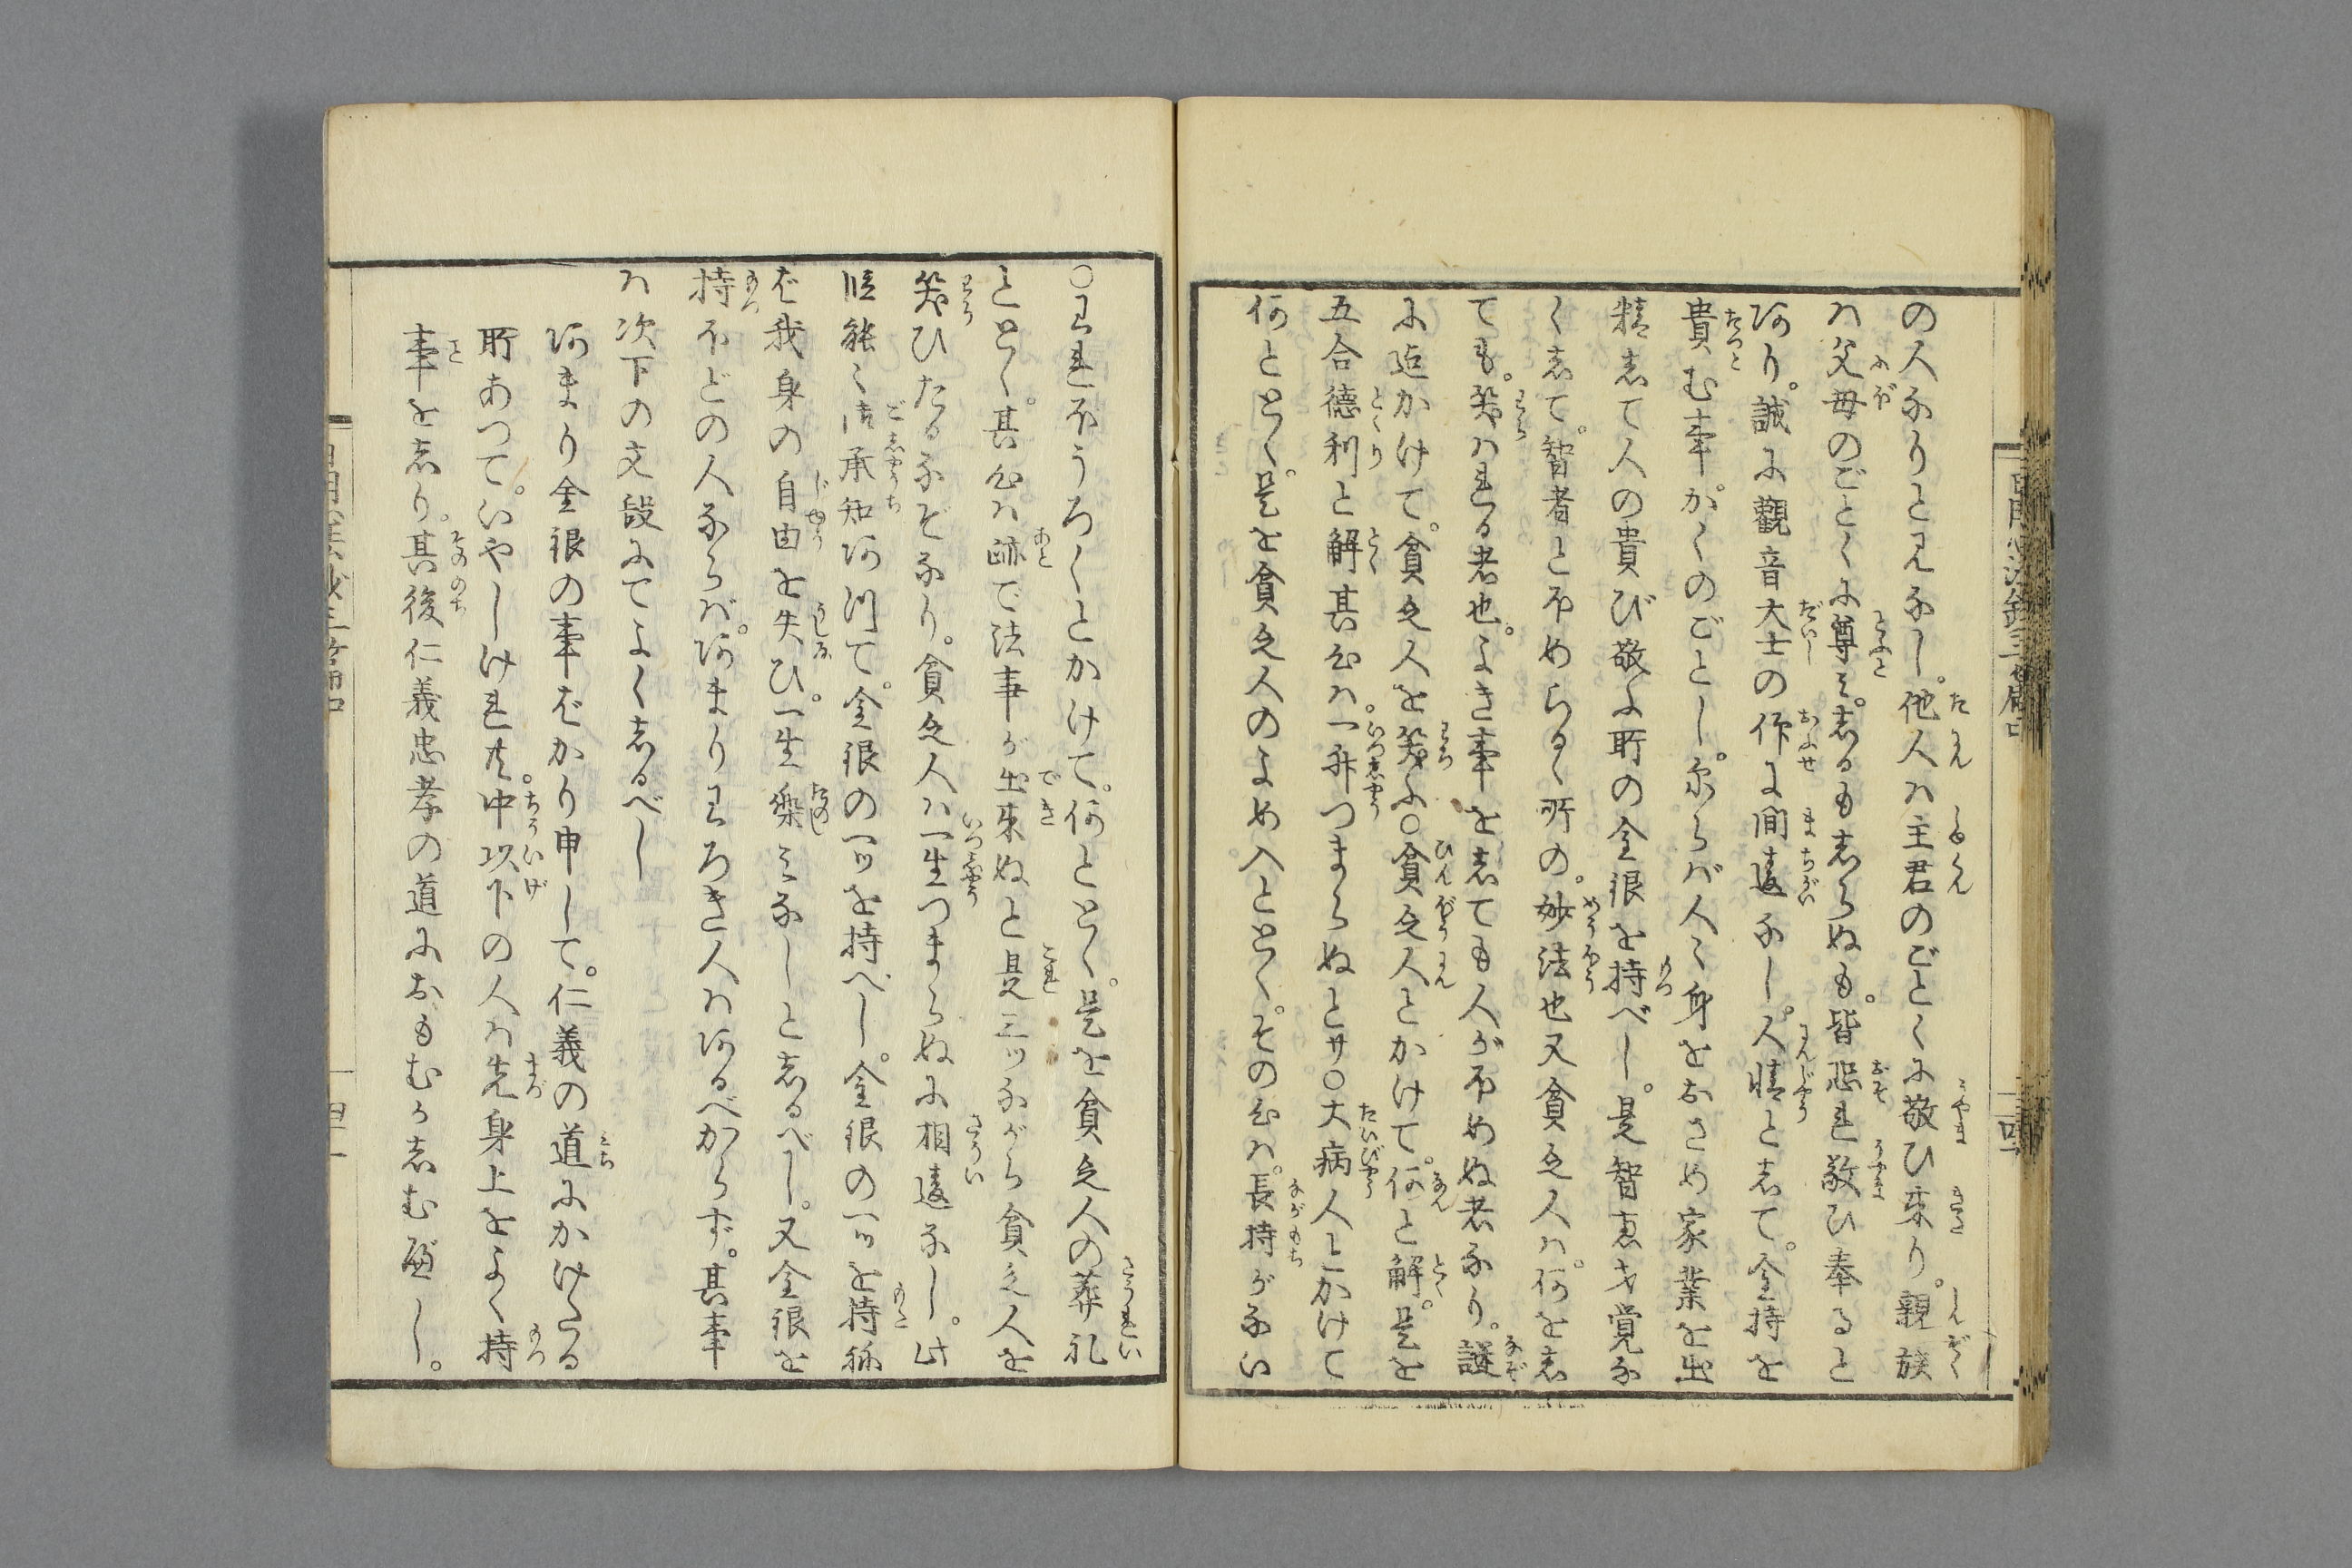 の人なりとみえなし。他人ハ主君のごとくに敬ひ来り。親族
ハ父母のごとくに尊ミ。しるもしらぬも。皆恐れ敬ひ奉ると
あり。誠に觀音大士の作に間違なし。人情として。金持を
貴む事かくのごとし。然らバ人々身をおさめ家業を出
精して人の貴び敬ふ所の金銀を持べし。是智恵才覚な
くして。智者とほめらるゝ所の。妙法也又貧乏人ハ。何をし
ても。笑ハれる者也。よき事をしても人がほめぬ者なり。謎
に迠かけて。貧乏人を笑ふ○貧乏人とかけて。何と解。是を
五合徳利と解其心ハ。一升つまらぬとサ○大病人とかけて
何ととく。是を貧乏人のよめ入ととく。その心ハ。長持がない
○われほうろくとかけて。何ととく。是を貧乏人の葬礼
ととく。其心ハ跡で法事が出来ぬと是三ッながら貧乏人を
笑ひたるなぞなり。貧乏人ハ一生つまらぬに相違なし。此
段能々御承知あつて。金銀の一ッを持べし。金銀の一ッを持
ねば我身の自由を失ひ。一生樂ミなしとしるべし。又金銀を
持ほどの人ならバ。あまりわろき人ハあるべからず。其事
ハ次下の文段にてよくしるべし
あまり金銀の事ばかり申して。仁義の道にかけたる
所あつて。いやしけれ共。中以下の人ハ先身上をよく持
事をしり。其後仁義忠孝の道におもむかしむべし。
四十